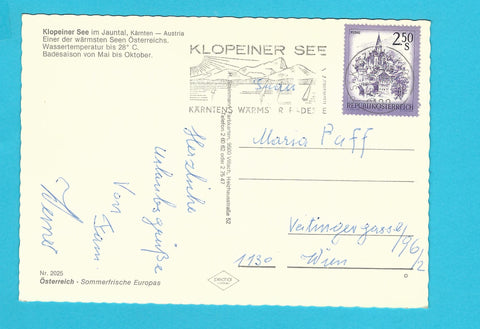 Klopeiner See im Jauntal, Kärnten — Austria
Einer der wärmsten Seen Österreichs.
Wassertemperatur bis 28° C.
Badesaison von Mai bis Oktober.
KLOPEINER SEE
KÄRNTENS WÄRMSTER BADESEE
2.50
S
REPUBLIK ÖSTERREICH
Herzliche
Urlaubsgrüße
Von Fam
Werner
9500 Villach,
52
Maria Paff
Veitingergasse
96/2
1130 Wien
Nr. 2025
Österreich - Sommerfrische Europas